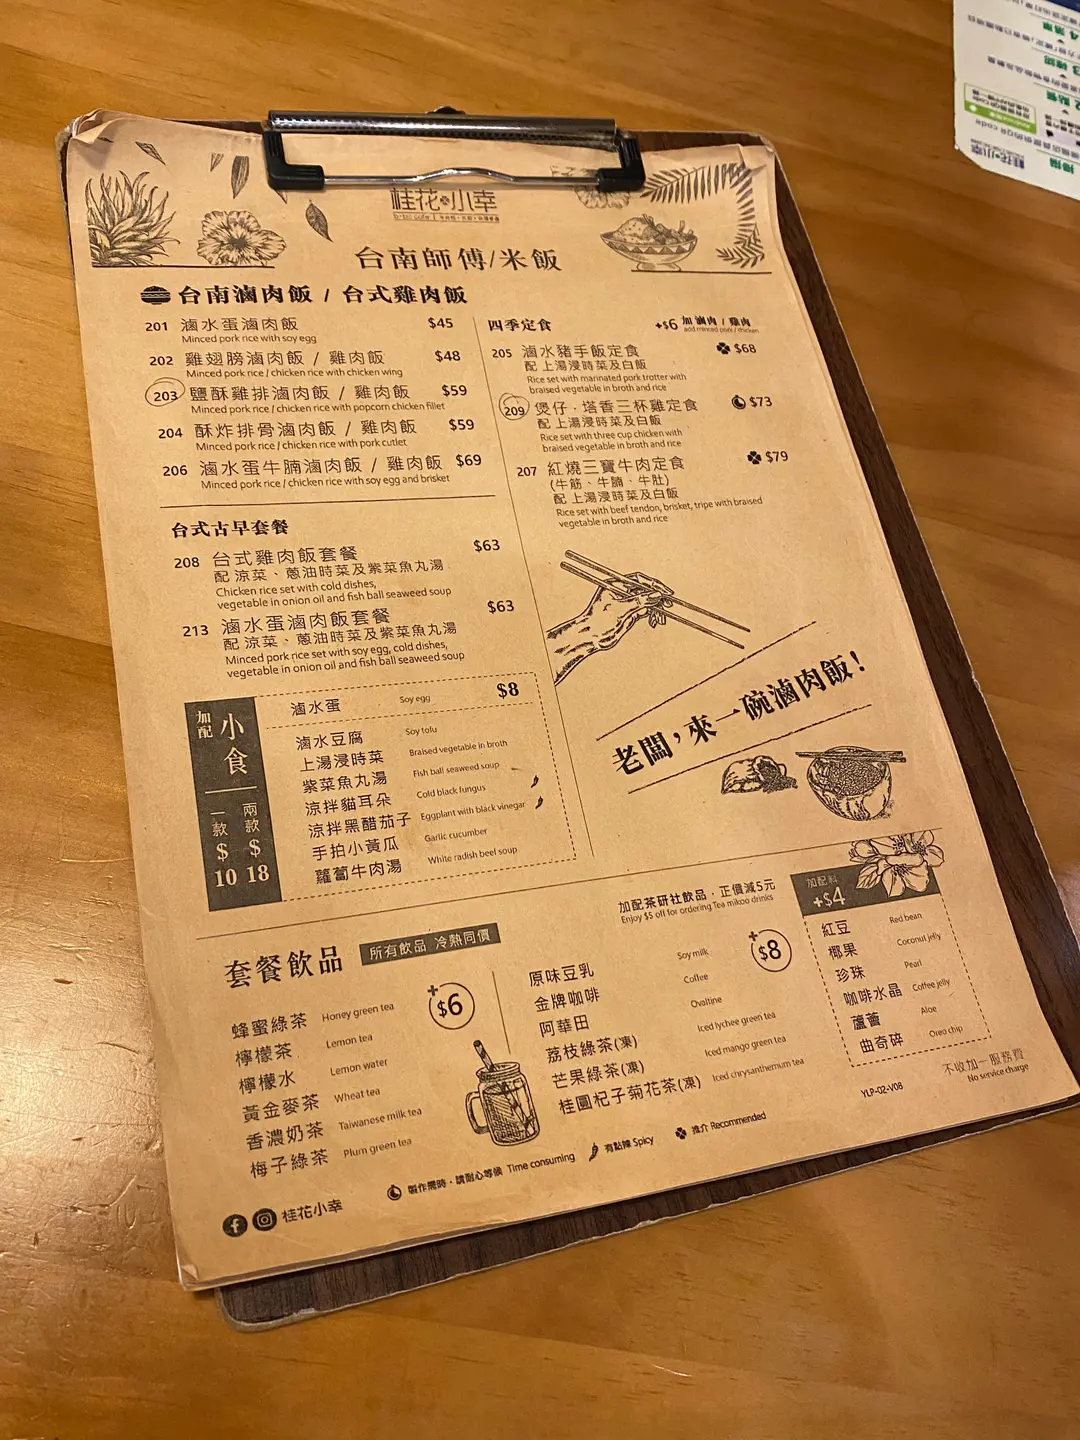 桂花小幸
台南師傅/米飯
台南滷肉飯 / 台式雞肉飯
201 滷水蛋滷肉飯 $45
Minced pork rice with soy egg
202 雞翅膀滷肉飯 / 雞肉飯 $48
Minced pork rice / chicken rice with chicken wing
203 鹽酥雞排滷肉飯 / 雞肉飯 $59
Minced pork rice / chicken rice with popcorn chicken fillet
204 酥炸排骨滷肉飯 / 雞肉飯 $59
Minced pork rice / chicken rice with pork cutlet
206 滷水蛋牛腩滷肉飯 / 雞肉飯 $69
Minced pork rice / chicken rice with soy egg and brisket
四季定食 +$6 加 滷肉 / 雞肉
add minced pork / chicken
205 滷水豬手飯定食 $68
配 上湯浸時菜及白飯
Rice set with marinated pork trotter with
braised vegetable in broth and rice
209 煲仔．塔香三杯雞定食 $73
配 上湯浸時菜及白飯
Rice set with three cup chicken with
braised vegetable in broth and rice
207 紅燒三寶牛肉定食 $79
(牛筋、牛腩、牛肚)
配 上湯浸時菜及白飯
Rice set with beef tendon, brisket, tripe with braised
vegetable in broth and rice
台式古早套餐
208 台式雞肉飯套餐 $63
配 涼菜、蔥油時菜及紫菜魚丸湯
Chicken rice set with cold dishes,
vegetable in onion oil and fish ball seaweed soup
213 滷水蛋滷肉飯套餐 $63
配 涼菜、蔥油時菜及紫菜魚丸湯
Minced pork rice set with soy egg, cold dishes,
vegetable in onion oil and fish ball seaweed soup
加配 小食
一款 $10
兩款 $18
滷水蛋 Soy egg $8
滷水豆腐 Soy tofu
上湯浸時菜 Braised vegetable in broth
紫菜魚丸湯 Fish ball seaweed soup
涼拌貓耳朵 Cold black fungus
涼拌黑醋茄子 Eggplant with black vinegar
手拍小黃瓜 Garlic cucumber
蘿蔔牛肉湯 White radish beef soup
老闆，來一碗滷肉飯！
套餐飲品 所有飲品 冷熱同價
加配茶研社飲品．正價減5元
Enjoy $5 off for ordering Tea mikoo drinks
+$6
蜂蜜綠茶 Honey green tea
檸檬茶 Lemon tea
檸檬水 Lemon water
黃金麥茶 Wheat tea
香濃奶茶 Taiwanese milk tea
梅子綠茶 Plum green tea
+$8
原味豆乳 Soy milk
金牌咖啡 Coffee
阿華田 Ovaltine
荔枝綠茶(凍) Iced lychee green tea
芒果綠茶(凍) Iced mango green tea
桂圓杞子菊花茶(凍) Iced chrysanthemum tea
加配料
+$4
紅豆 Red bean
椰果 Coconut jelly
珍珠 Pearl
咖啡水晶 Coffee jelly
蘆薈 Aloe
曲奇碎 Oreo chip
不收加一服務費
No service charge
YLP-02-V08
製作需時．請耐心等候 Time consuming 有點辣 Spicy 推介 Recommended
桂花小幸